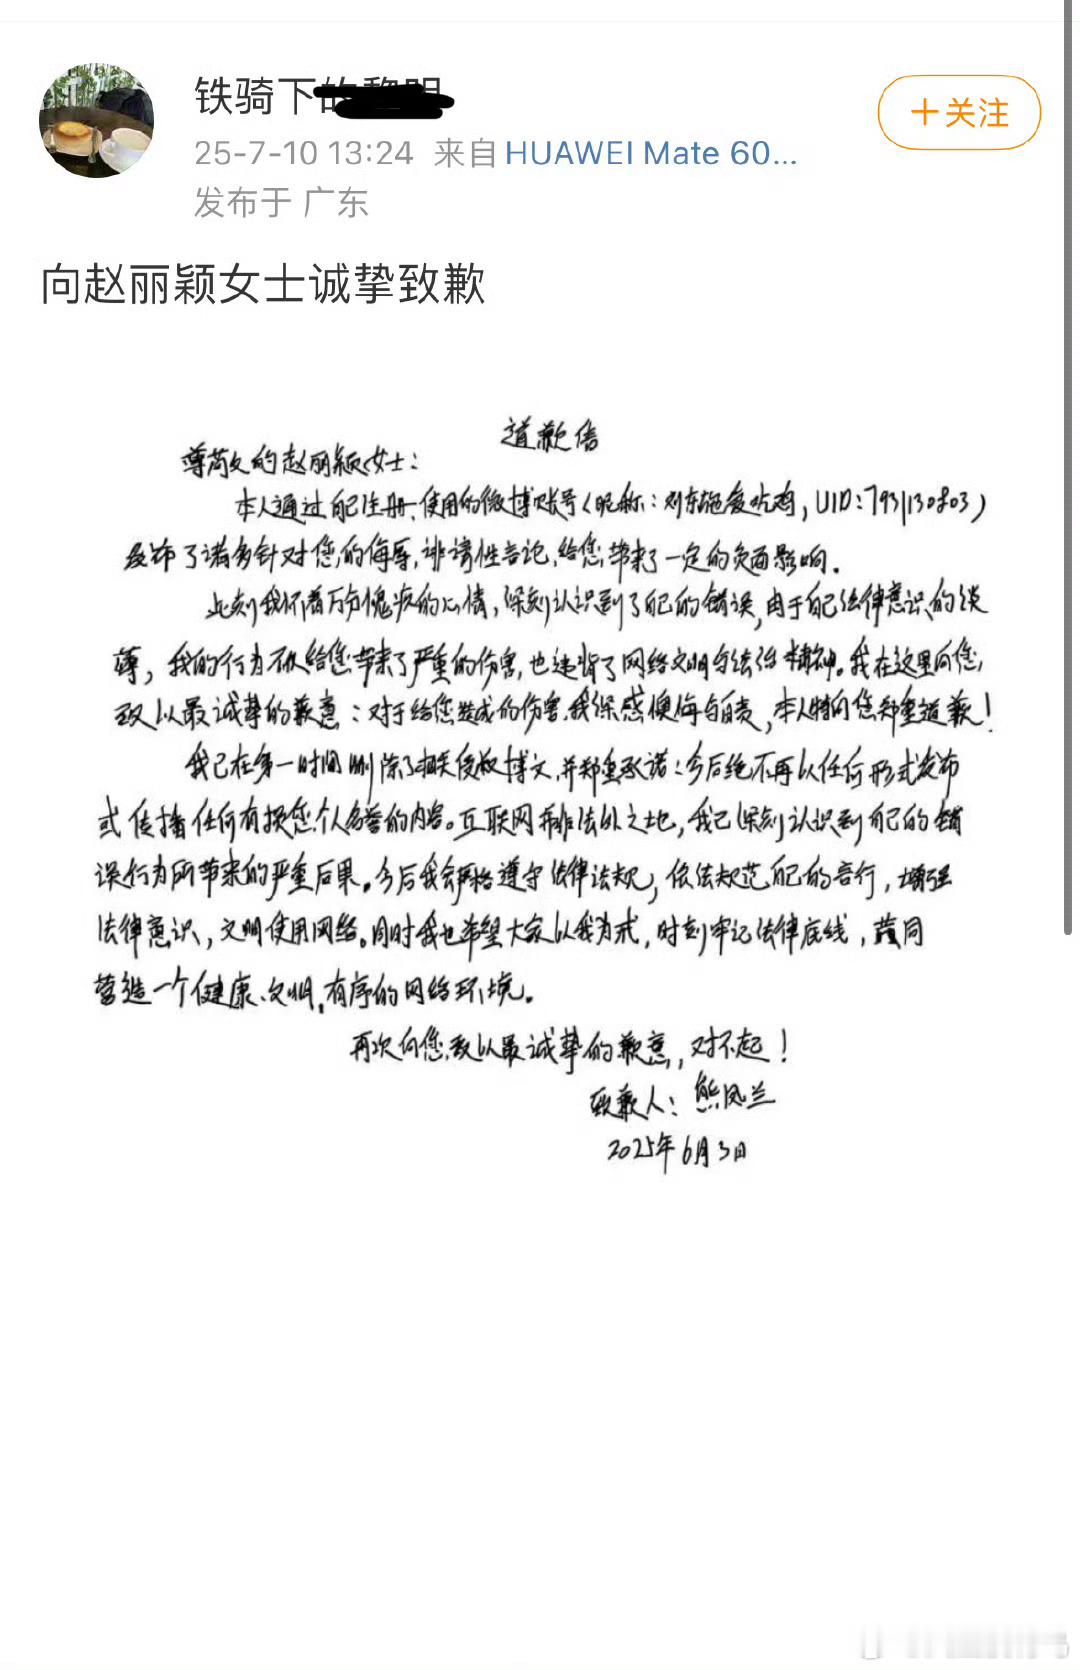 铁骑下
25-7-10 13:24 来自 HUAWEI Mate 60...
发布于 广东
+关注
向赵丽颖女士诚挚致歉
道歉信
尊敬的赵丽颖女士：
本人通过自己注册、使用的微博账号（昵称：刘东施爱吃鸡，UID：7931130803）
发布了诸多针对您的侮辱、诽谤性言论，给您带来了一定的负面影响。
此刻我怀着万分愧疚的心情，深刻认识到了自己的错误，由于自己法律意识的淡
薄，我的行为不仅给您带来了严重的伤害，也违背了网络文明与法治精神。我在这里向您
致以最诚挚的歉意：对于给您造成的伤害，我深感懊悔与自责，本人特向您郑重道歉！
我已在第一时间删除了相关侵权博文，并郑重承诺：今后绝不再以任何形式发布
或传播任何有损您个人名誉的内容。互联网并非法外之地，我已深刻认识到自己的错
误行为所带来的严重后果。今后我会严格遵守法律法规，依法规范自己的言行，增强
法律意识，文明使用网络。同时我也希望大家以我为戒，时刻牢记法律底线，共同
营造一个健康、文明、有序的网络环境。
再次向您致以最诚挚的歉意，对不起！
致歉人：熊凤兰
2025年6月3日